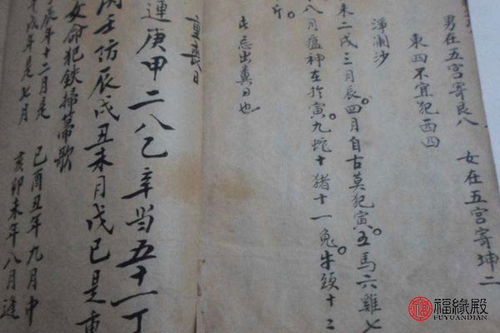 男在五宮寄艮八
女在五宮寄坤二
東四不宜犯西四
未二戌三月辰。四月自古莫犯寅。五馬六雞七
八月瘟神在於寅。九蛇十猪十一兔。牛頭十二
斤
忌出糞日也
重喪日
連庚甲二八乙辛当五十一丁
丙壬防辰戌丑未月戊己是重
女命犯鉄掃菷歌
辰年十二月是 己酉丑年九月中
戌年是七月 亥卯未年八月逢
福緣殿
FUYUANDIAN